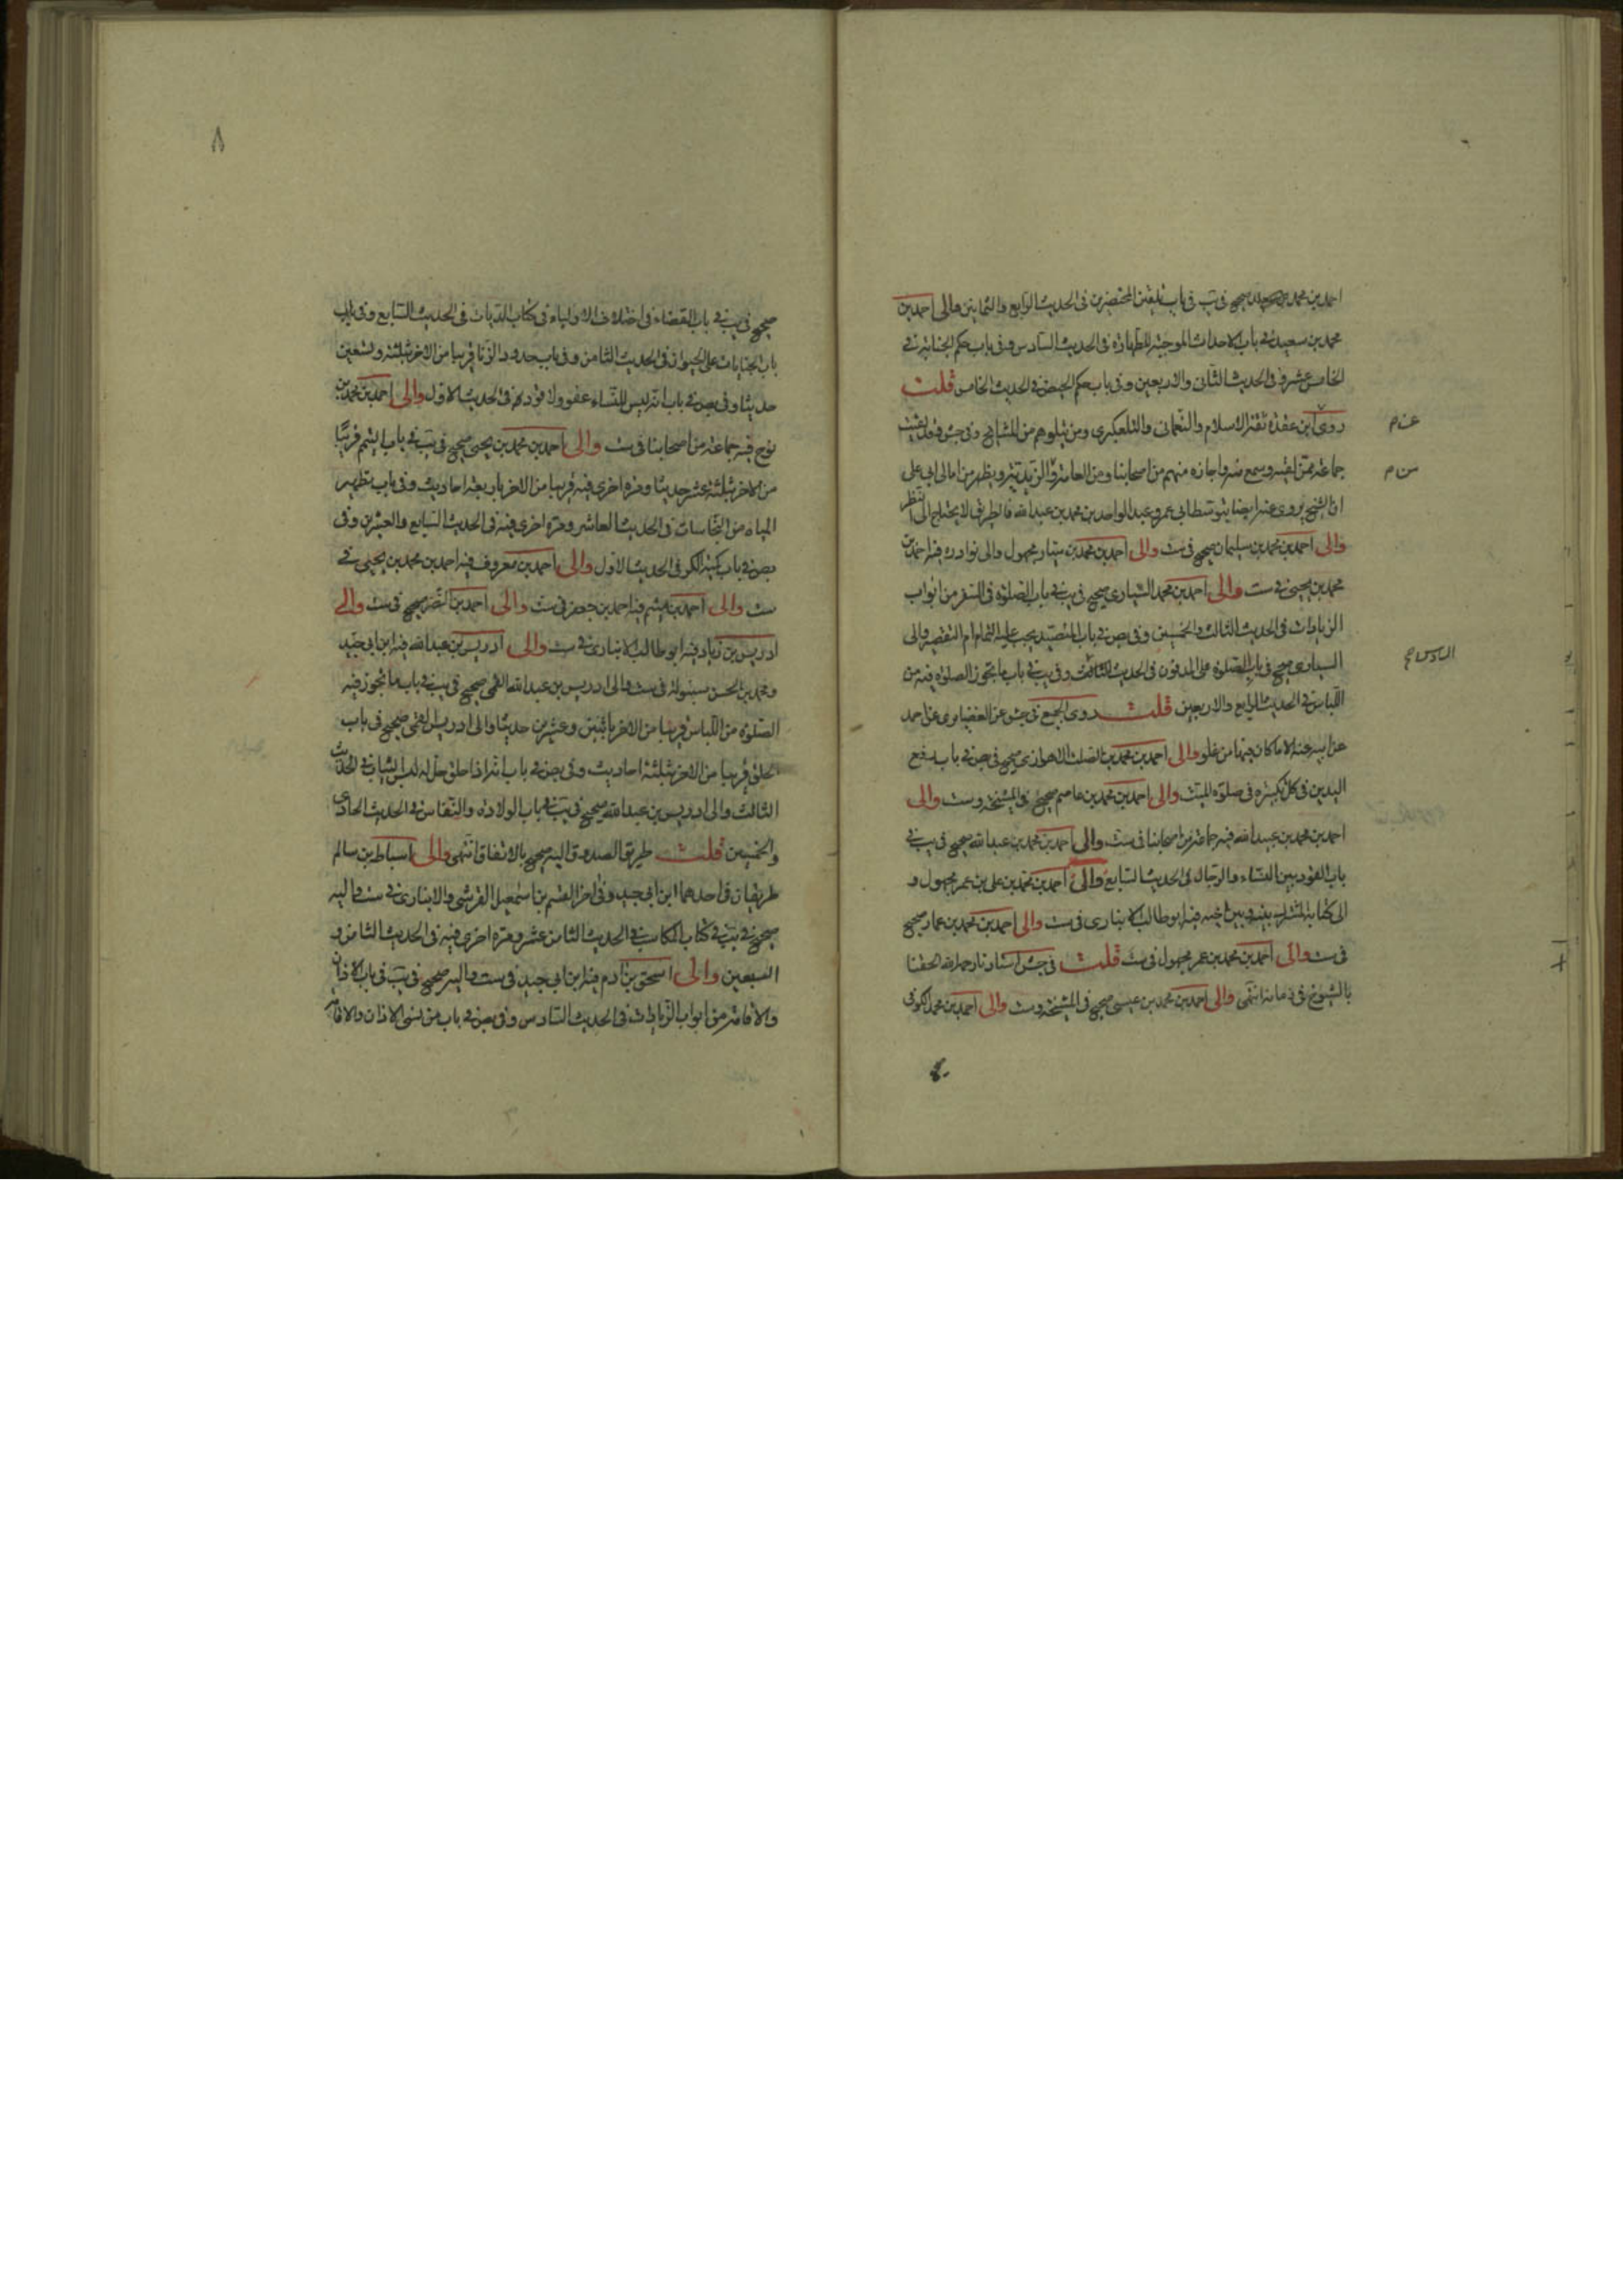 احمد بن محمد بن صحيح في يب في باب تلقين المحتضرين في الحديث الرابع والثمانين والى احمد بن
محمد بن سعيد في باب الاحداث الموجبة للطهارة في الحديث السادس وفي باب حكم الجنابة في
الخامس عشر وفي الحديث الثاني والاربعين وفي باب حكم الحيض في الحديث الخامس قلت
روى ابن عقدة ثقة الاسلام والنعماني والتلعكبري ومن يتلوهم من المشايخ وفي جش وقد لقيت
جماعة ممن لقيه وسمع منه واجازه منهم من اصحابنا ومن العامة والزيدية ويظهر من امالي ابي علي
ان الشيخ يروي عنه ايضا بتوسط ابي عمرو عبد الواحد بن محمد بن عبد الله فالطريق لا يحتاج الى النظر
والى احمد بن محمد بن سليمان صحيح في ست والى احمد بن محمد بن سيار مجهول والى نوادره فيه احمد بن
محمد بن يحيى في ست والى احمد بن محمد السياري صحيح في يب في باب الصلوة في السفر من ابواب
الزيادات في الحديث الثالث والخمسين وفي بص في باب المتصيد يجب عليه التمام ام التقصير والى
السياري صحيح في باب الصلوة على المدفون في الحديث الثالث وفي يب في باب ما يجوز الصلوة فيه من
اللباس في الحديث الرابع والاربعين قلت روى الجميع في جش عن الغضايري عن احمد
عن ابيه عنه الا ما كان فيها من غلو والى احمد بن محمد بن الصلت الاهوازي صحيح في بص في باب رفع
اليدين في كل تكبيرة في صلوة الميت والى احمد بن محمد بن عاصم صحيح في المشيخة وست والى
احمد بن محمد بن عبيد الله فيه جماعة من اصحابنا في ست والى احمد بن محمد بن عبد الله صحيح في يب في
باب القود بين النساء والرجال في الحديث السابع والى احمد بن محمد بن علي بن عمر مجهول و
الى كتابه المشترك بينه وبين اخيه فيه ابو طالب الانباري في ست والى احمد بن محمد بن عمار صحيح
في ست والى احمد بن محمد بن عمر مجهول في ست قلت في جش استادنا رحمه الله الحقنا
بالشيوخ في زمانه انتهى والى احمد بن محمد بن عيسى صحيح في المشيخة وست والى احمد بن محمد الكوفي
٨
صحيح في يب في باب القضاء في اختلاف الاولياء في كتاب الديات في الحديث السابع وفي باب
باب الجنايات على الحيوان في الحديث الثامن وفي باب حدود الزنا قريبا من الاخر بثلثة وتسعين
حديثا وفي بص في باب انه ليس للنساء عفو ولا قود في الحديث الاول والى احمد بن محمد بن
نوح فيه جماعة من اصحابنا في ست والى احمد بن محمد بن يحيى صحيح في يب في باب التيمم قريبا
من الاخر بثلثة عشر حديثا ومرة اخرى فيه قريبا من الاخر باربعة احاديث وفي باب تطهير
المياه من النجاسات في الحديث العاشر ومرة اخرى فيه في الحديث السابع والعشرين وفي
بص في باب كمية الكر في الحديث الاول والى احمد بن معروف فيه احمد بن محمد بن يحيى في
ست والى احمد بن ميثم فيه احمد بن جعفر في ست والى احمد بن النضر صحيح في ست والى
ادريس بن زياد فيه ابو طالب الانباري في ست والى ادريس بن عبد الله فيه ابن ابي جيد
ومحمد بن الحسن سنبولة في ست والى ادريس بن عبد الله القمي صحيح في يب في باب ما تجوز فيه
الصلوة من اللباس قريبا من الاخر باثنين وعشرين حديثا والى ادريس القمي صحيح في باب
الحلق قريبا من الاخر بثلثة احاديث وفي بص في باب انه اذا حلق حل له لبس الثياب في الحديث
الثالث والى ادريس بن عبد الله صحيح في يب في باب الولادة والنفاس في الحديث الحادي
والخمسين قلت طريق الصدوق اليه صحيح بالاتفاق انتهى والى اسباط بن سالم
طريقان في احدهما ابن ابي جيد وفي اخر القسم بن اسمعيل القرشي والانباري في ست واليه
صحيح في يب في كتاب المكاسب في الحديث الثامن عشر ومرة اخرى فيه في الحديث الثامن و
السبعين والى اسحق بن آدم فيه ابن ابي جيد في ست واليه صحيح في يب في باب الاذان
والاقامة من ابواب الزيادات في الحديث السادس وفي بص في باب من نسى الاذان والاقامة